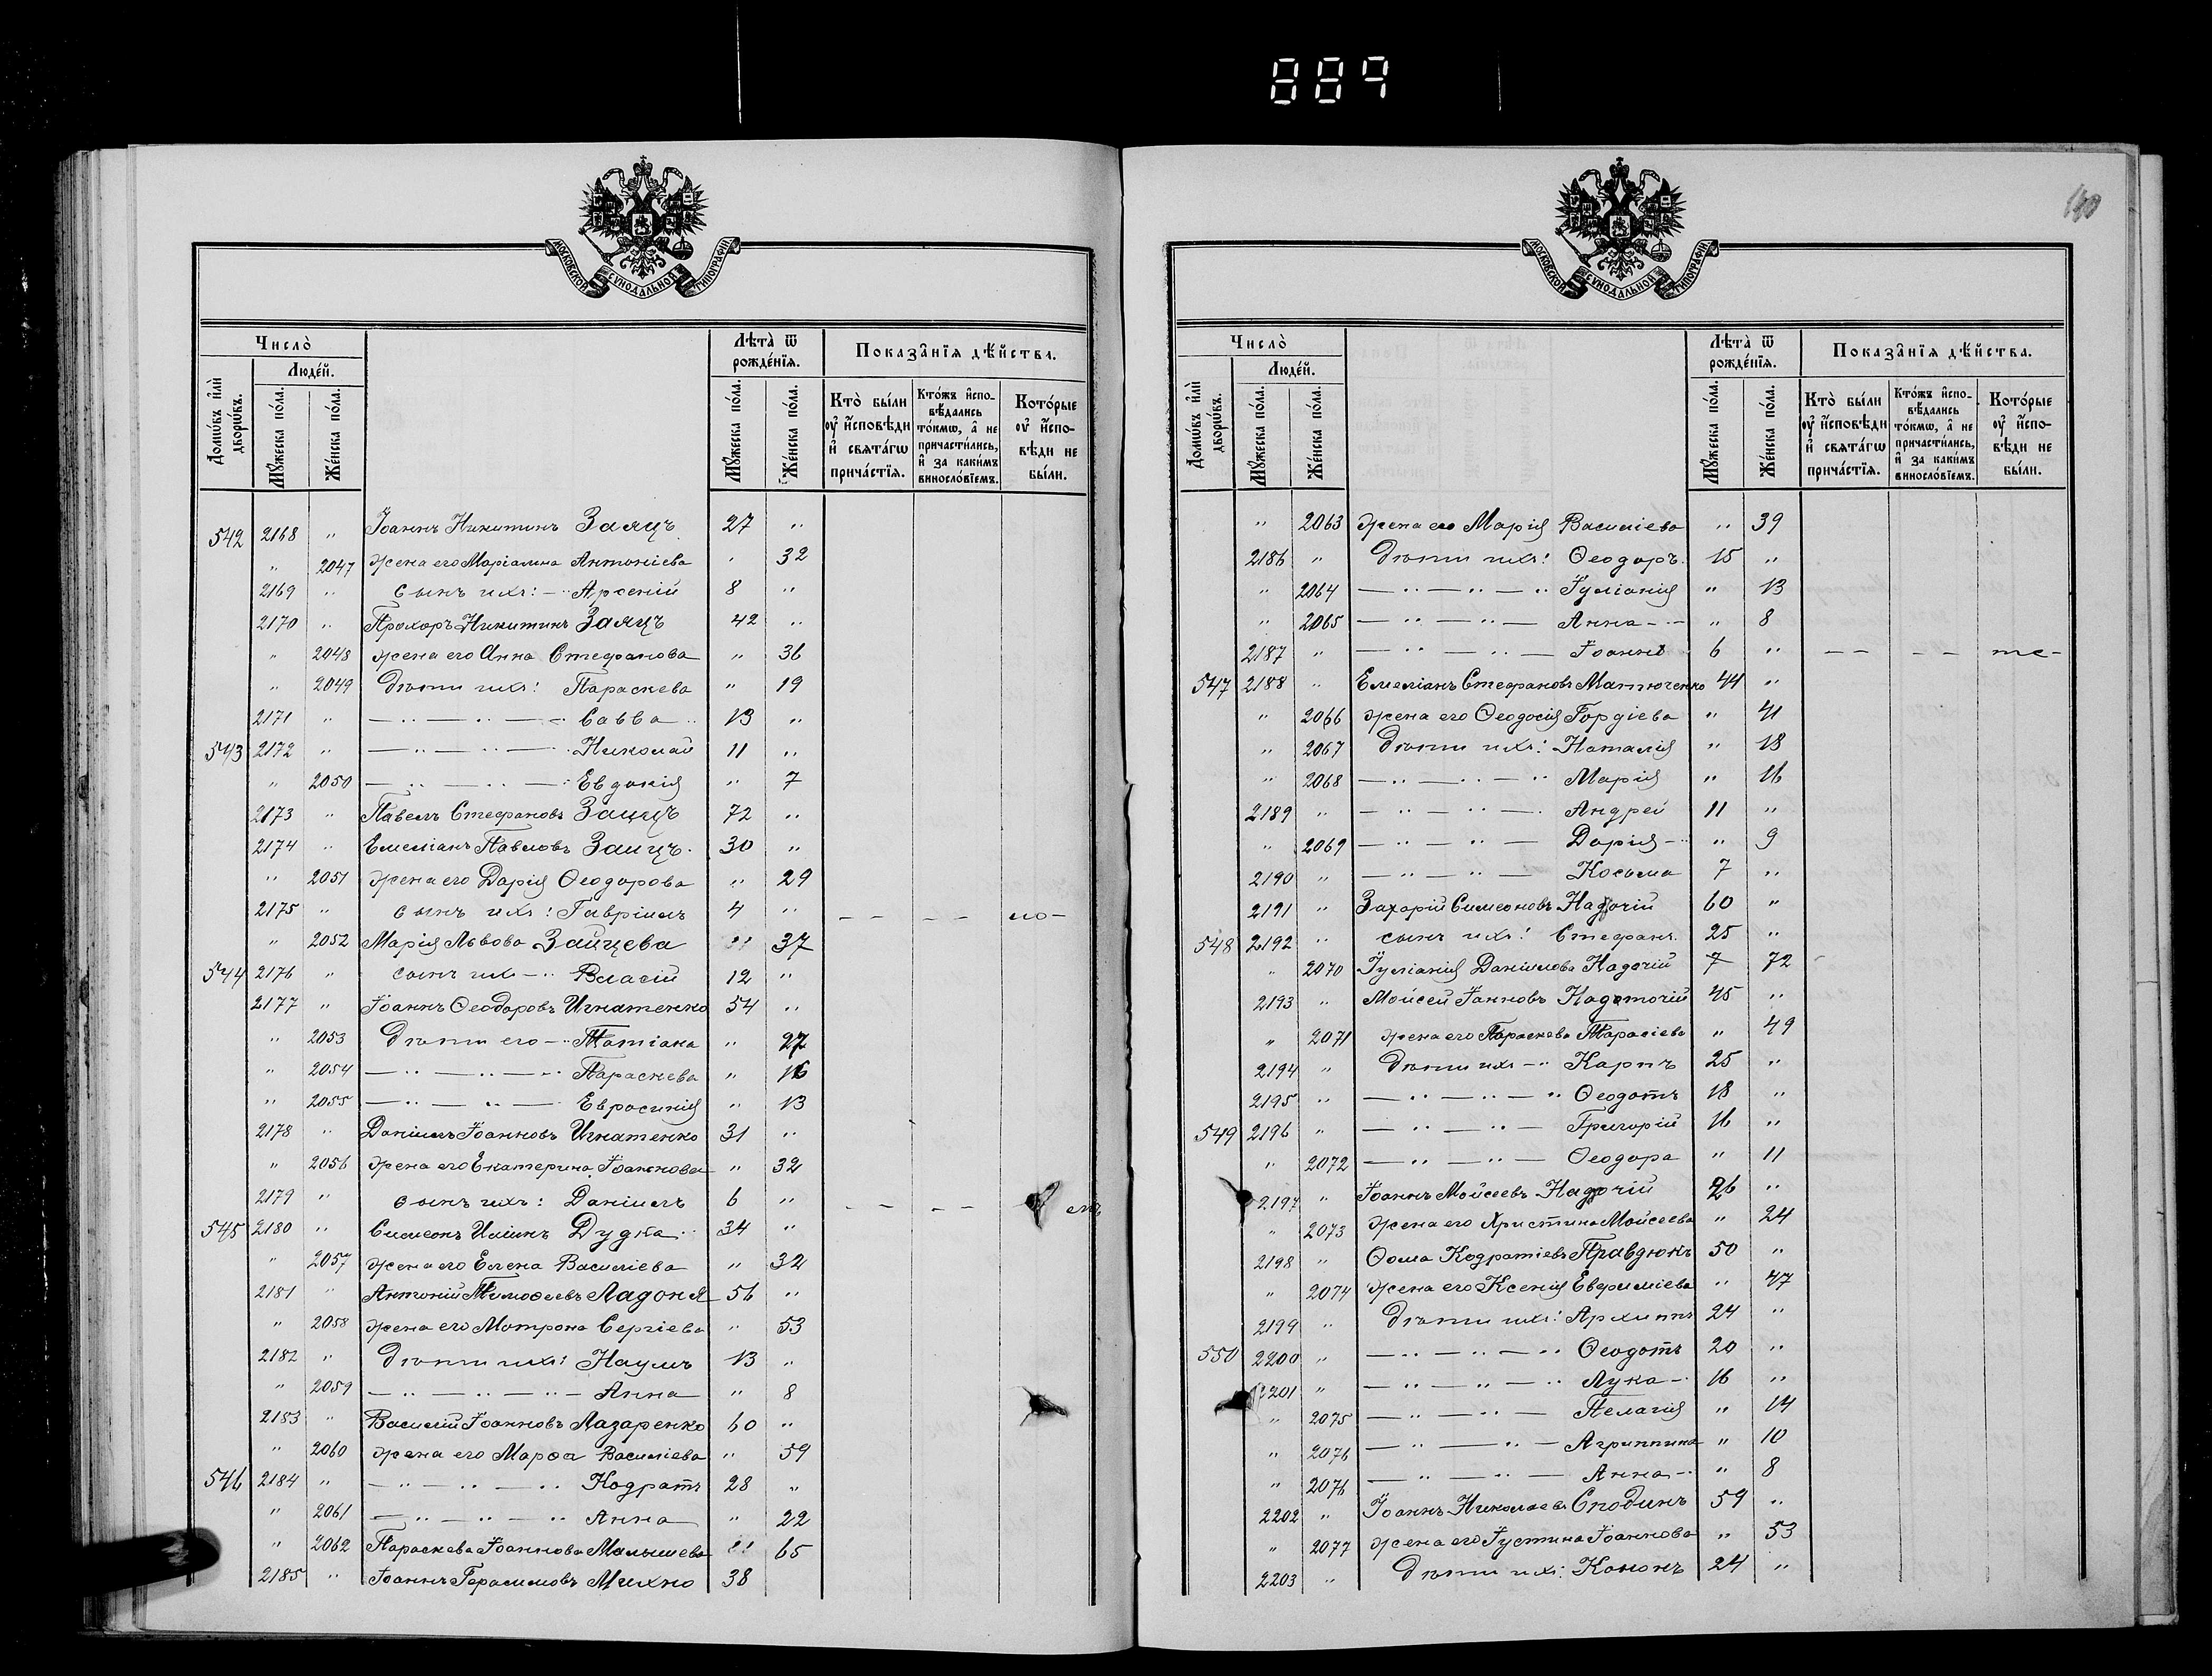 889
МОСКОВСКОЙ СѴНОДАЛЬНОЙ ТИПОГРАФІИ
Число̀
Домѡвъ и҆лѝ дворѡвъ.
Люде́й.
Мꙋ́жеска по́ла.
Же́нска по́ла.
Лѣ́та ѿ рожде́нїѧ.
Мꙋ́жеска по́ла.
Же́нска по́ла.
Показа̑нїѧ дѣ́йства.
Кто̀ бы́ли ᲂу҆ и҆́сповѣди и҆ свѧта́гѡ прича́стїѧ.
Кто́жъ и҆спо-вѣ́дались то́кмѡ, а҆ не причасти́лись, и҆ за каки́мъ винослові́емъ.
Кото́рые ᲂу҆ и҆́спо-вѣди не бы́ли.
542 2168 " Іоаннъ Никитинъ Заяцъ 27 "
" 2047 жена его Маріамна Антоніева " 32
2169 " сынъ ихъ: — Арсеній 8 "
2170 " Прохоръ Никитинъ Заяцъ 42 "
" 2048 жена его Анна Стефанова " 36
" 2049 дѣти ихъ: Параскева " 19
2171 " — " — " — Савва 13 "
543 2172 " — " — " — Николай 11 "
" 2050 — " — " — Евдокія " 7
2173 " Павелъ Стефановъ Заицъ 72 "
2174 " Емеліанъ Павловъ Заицъ 30 "
" 2051 жена его Дарія Ѳеодорова " 29
2175 " сынъ ихъ: Гавріилъ 4 " — — — — ло-
" 2052 Марія Львова Зайцева " 37
544 2176 " сынъ ихъ — Власій 12 "
2177 " Іоаннъ Ѳеодоровъ Игнатенко 54 "
" 2053 дѣти его — Татіана " 27
" 2054 — " — " — Параскева " 16
" 2055 — " — " — Евросинія " 13
2178 " Даніилъ Іоанновъ Игнатенко 31 "
" 2056 жена его Екатерина Іоаннова " 32
2179 " сынъ ихъ: Даніилъ 6 " — — — —
545 2180 " Симеонъ Иліинъ Дудка 34 "
" 2057 жена его Елена Василіева " 32
2181 " Антоній Тимоѳеевъ Ладоня 56 "
" 2058 жена его Матрона Сергіева " 53
2182 " дѣти ихъ: Наумъ 13 "
" 2059 — " — " — Анна " 8
2183 " Василій Іоанновъ Лазаренко 60 "
" 2060 жена его Марѳа Василіева " 59
546 2184 " — " — " — Кодратъ 28 "
" 2061 — " — " — Анна " 22
" 2062 Параскева Іоаннова Малышева " 65
2185 " Іоаннъ Герасимовъ Михно 38
140
МОСКОВСКОЙ СѴНОДАЛЬНОЙ ТИПОГРАФІИ
Число̀
Домѡвъ и҆лѝ дворѡвъ.
Люде́й.
Мꙋ́жеска по́ла.
Же́нска по́ла.
Лѣ́та ѿ рожде́нїѧ.
Мꙋ́жеска по́ла.
Же́нска по́ла.
Показа̑нїѧ дѣ́йства.
Кто̀ бы́ли ᲂу҆ и҆́сповѣди и҆ свѧта́гѡ прича́стїѧ.
Кто́жъ и҆спо-вѣ́дались то́кмѡ, а҆ не причасти́лись, и҆ за каки́мъ винослові́емъ.
Кото́рые ᲂу҆ и҆́спо-вѣди не бы́ли.
" 2063 жена его Марія Василіева " 39
2186 " дѣти ихъ: Ѳеодоръ 15 "
" 2064 — " — " — " Іуліанія " 13
" 2065 — " — " — Анна " 8
2187 " — " — " — Іоаннъ 6 " — — — — те-
547 2188 " Емеліанъ Стефановъ Матюченко 44 "
" 2066 жена его Ѳеодосія Гордіева " 41
" 2067 дѣти ихъ: Наталія " 18
" 2068 — " — " — " Марія " 16
2189 " — " — " — Андрей 11 "
" 2069 — " — " — Дарія " 9
2190 " — " — " — Косьма 7 "
2191 " Захарій Симеоновъ Надточій 60 "
548 2192 " сынъ ихъ: Стефанъ 25 "
" 2070 Іуліанія Даніилова Надочій 7 72
2193 " Мойсей Іанновъ Надточій 45 "
" 2071 жена его Параскева Тарасіева " 49
2194 " дѣти ихъ — Карпъ 25 "
2195 " — " — " — " Ѳеодотъ 18 "
549 2196 " — " — " — Григорій 16 "
" 2072 — " — " — Ѳеодора " 11
2197 " Іоаннъ Мойсеевъ Надточій 26 "
" 2073 жена его Христина Мойсеева " 24
2198 " Ѳома Кодратіевъ Правдюкъ 50 "
" 2074 жена его Ксенія Евфиміева " 47
2199 " дѣти ихъ: Архипъ 24 "
550 2200 " — " — " — " Ѳеодотъ 20 "
2201 " — " — " — " Лука 16 "
" 2075 — " — " — Пелагія " 14
" 2076 — " — " — Агриппина " 10
" 2076 — " — " — Анна " 8
2202 " Іоаннъ Николаевъ Сподинъ 59 "
" 2077 жена его Іустина Іоаннова " 53
2203 " дѣти ихъ: Кононъ 24 "